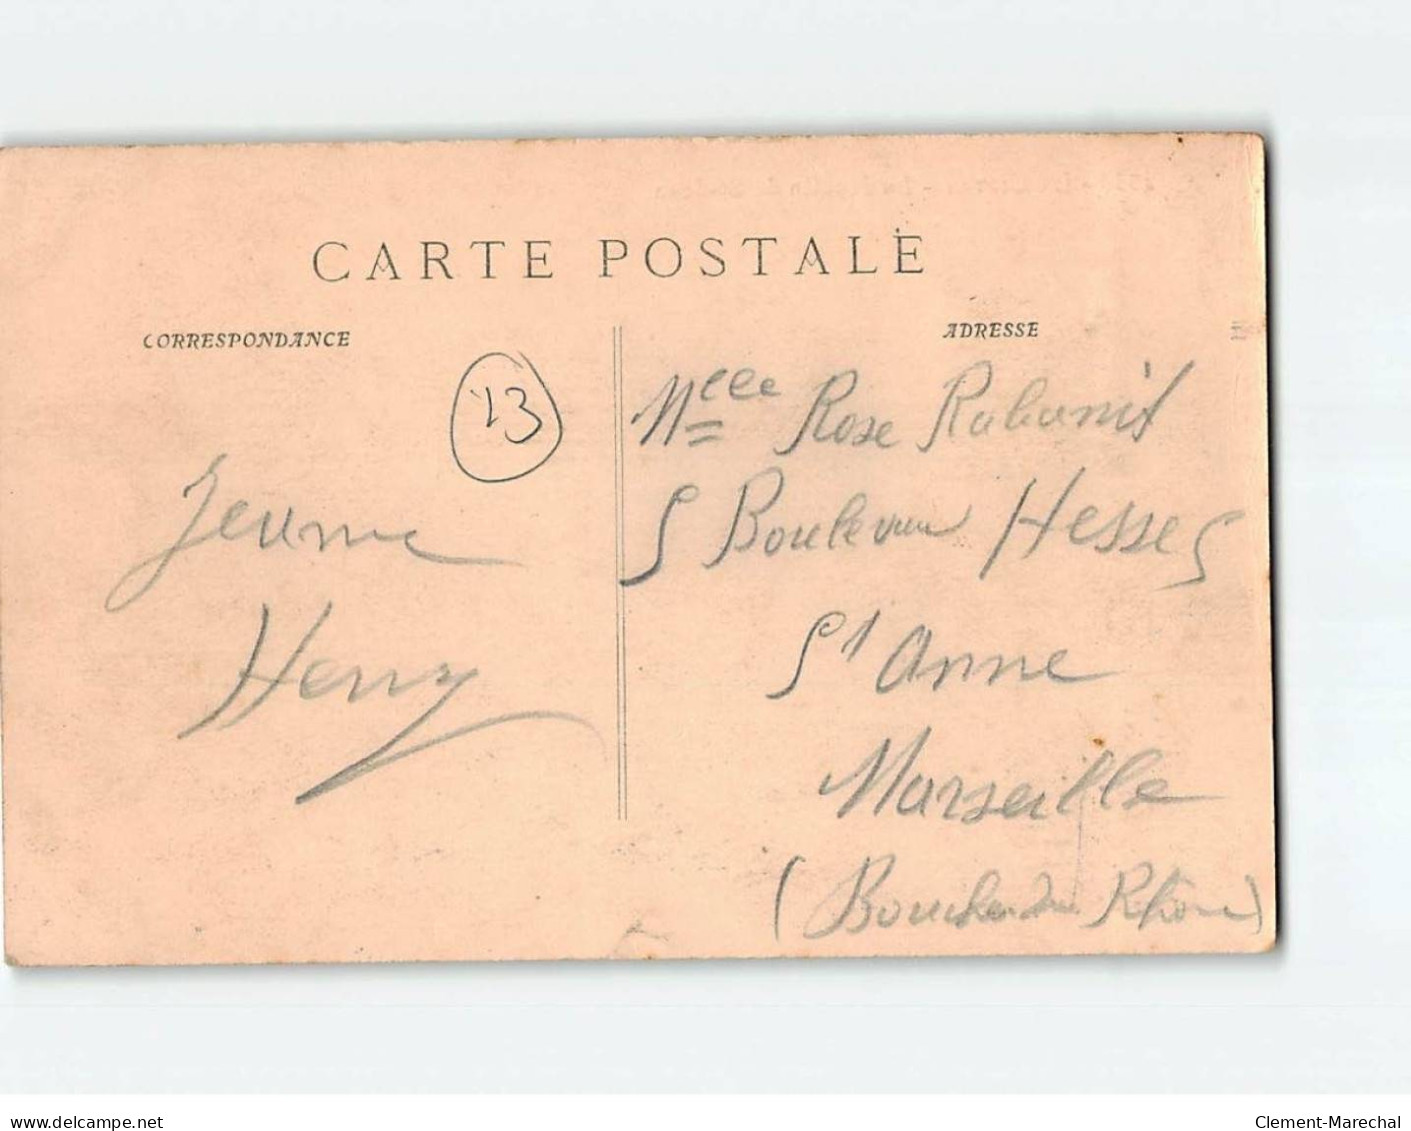 CARTE POSTALE
CORRESPONDANCE
ADRESSE
13
Jeanne
Henry
Melle Rose Rabanit
5 Boulevard Hesse 5
St Anne
Marseille
(Bouches du Rhône)
delcampe.net
Clement-Marechal